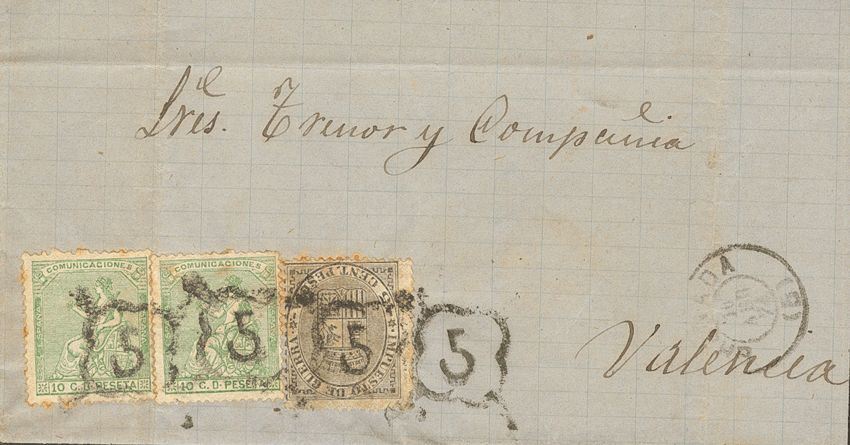 Sres. Trenor y Compañia
COMUNICACIONES
ESPAÑA
10 C. D. PESETA
COMUNICACIONES
10 C. D. PESETA
5 CENT. PESETA
IMPUESTO DE GUERRA
5
5
5
5
(5)
Valencia